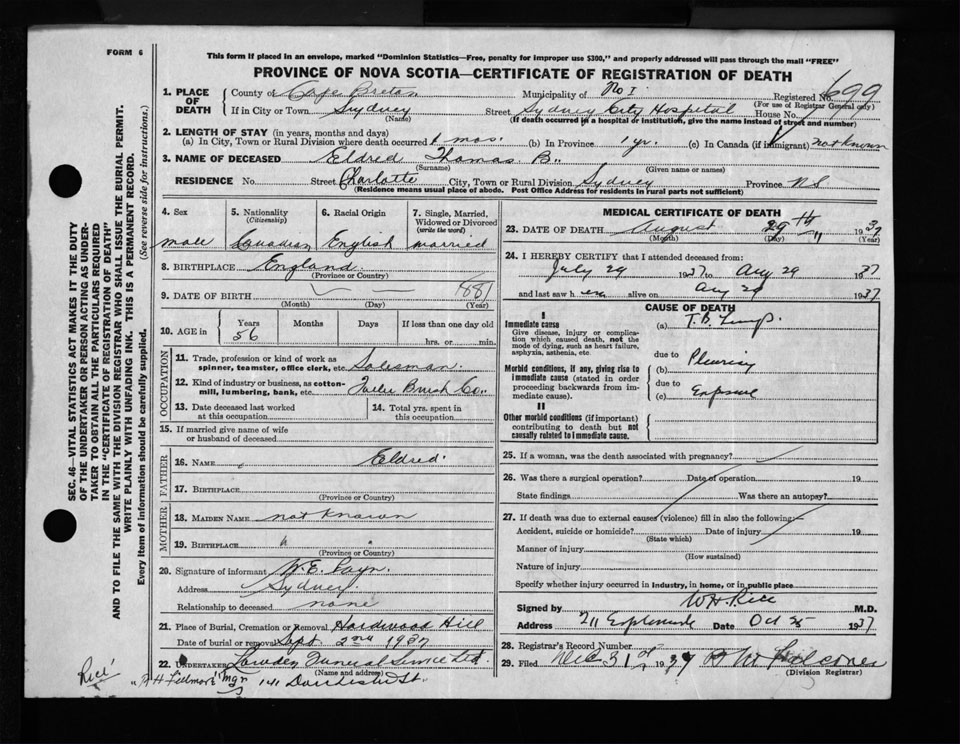 FORM 6
This form if placed in an envelope, marked "Dominion Statistics—Free, penalty for improper use $300," and properly addressed will pass through the mail "FREE"
PROVINCE OF NOVA SCOTIA—CERTIFICATE OF REGISTRATION OF DEATH
1. PLACE OF DEATH County of Cape Breton Municipality of No 1 Registered No. 699
(For use of Registrar General only)
If in City or Town Sydney Street Sydney City Hospital House No.
(Name) (If death occurred in a hospital or institution, give the name instead of street and number)
2. LENGTH OF STAY (in years, months and days)
(a) In City, Town or Rural Division where death occurred 1 mos. (b) In Province 1 yr. (c) In Canada (if immigrant) not known
3. NAME OF DECEASED Eldred Thomas B.
(Surname) (Given name or names)
RESIDENCE No. Street Charlotte City, Town or Rural Division Sydney Province N.S.
(Residence means usual place of abode. Post Office Address for residents in rural parts not sufficient)
4. Sex 5. Nationality 6. Racial Origin 7. Single, Married, Widowed or Divorced
(Citizenship) (write the word)
male Canadian English married
8. BIRTHPLACE England
(Province or Country)
9. DATE OF BIRTH — — 1881
(Month) (Day) (Year)
10. AGE in Years Months Days If less than one day old
56 hrs. or min.
OCCUPATION
11. Trade, profession or kind of work as spinner, teamster, office clerk, etc. Salesman
12. Kind of industry or business, as cotton-mill, lumbering, bank, etc. Fuller Brush Co.
13. Date deceased last worked at this occupation
14. Total yrs. spent in this occupation
15. If married give name of wife or husband of deceased
FATHER
16. Name Eldred
17. Birthplace
(Province or Country)
MOTHER
18. Maiden Name not known
19. Birthplace " "
(Province or Country)
20. Signature of informant W. E. Payn.
Address Sydney
Relationship to deceased none
21. Place of Burial, Cremation or Removal Hardwood Hill
Date of burial or removal Sept 2nd 1937
22. UNDERTAKER Lowden Funeral Service Ltd.
(Name and address)
"A H Fillmore" Mgr 141 Dorchester St.
Rice'
MEDICAL CERTIFICATE OF DEATH
23. DATE OF DEATH August 29th 1937
(Month) (Day) (Year)
24. I HEREBY CERTIFY that I attended deceased from:
July 29 1937 to Aug 29 1937
and last saw h alive on Aug 29 1937
CAUSE OF DEATH
I
Immediate cause
Give disease, injury or complication which caused death, not the mode of dying, such as heart failure, asphyxia, asthenia, etc.
(a) T.B. Lungs.
due to
(b) Pleurisy
Morbid conditions, if any, giving rise to immediate cause (stated in order proceeding backwards from immediate cause).
due to
(c) Exposure
II
Other morbid conditions (if important) contributing to death but not causally related to immediate cause.
25. If a woman, was the death associated with pregnancy?
26. Was there a surgical operation? Date of operation 19
State findings Was there an autopsy?
27. If death was due to external causes (violence) fill in also the following:—
Accident, suicide or homicide? Date of injury 19
(State which)
Manner of injury
(How sustained)
Nature of injury
Specify whether injury occurred in industry, in home, or in public place
Signed by W H Rice M.D.
Address 211 Esplanade Date Oct 25 1937
28. Registrar's Record Number
29. Filed Dec 31st 1937
(Division Registrar)
SEC. 46—VITAL STATISTICS ACT MAKES IT THE DUTY
OF THE UNDERTAKER OR PERSON ACTING AS UNDER-
TAKER TO OBTAIN ALL THE PARTICULARS REQUIRED
IN THE "CERTIFICATE OF REGISTRATION OF DEATH"
AND TO FILE THE SAME WITH THE DIVISION REGISTRAR WHO SHALL ISSUE THE BURIAL PERMIT.
WRITE PLAINLY WITH UNFADING INK. THIS IS A PERMANENT RECORD.
Every item of information should be carefully supplied. (See reverse side for instructions.)